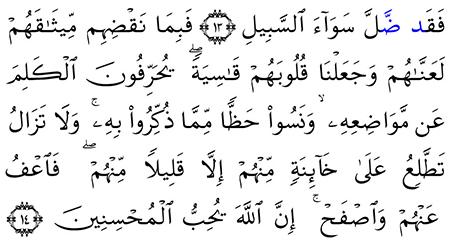 فَقَد ضَّلَّ سَوَآءَ اَ۬لسَّبِيلِ ١٣ فَبِمَا نَقْضِهِم مِّيثَٰقَهُمْ
لَعَنَّٰهُمْ وَجَعَلْنَا قُلُوبَهُمْ قَٰسِيَةٗۖ يُحَرِّفُونَ اَ۬لْكَلِمَ
عَن مَّوَاضِعِهِۦ وَنَسُواْ حَظّٗا مِّمَّا ذُكِّرُواْ بِهِۦۚ وَلَا تَزَالُ
تَطَّلِعُ عَلَىٰ خَآئِنَةٖ مِّنْهُمْ إِلَّا قَلِيلٗا مِّنْهُمْۖ فَاَعْفُ
عَنْهُمْ وَاَصْفَحْۚ إِنَّ اَ۬للَّهَ يُحِبُّ اُ۬لْمُحْسِنِينَ ١٤